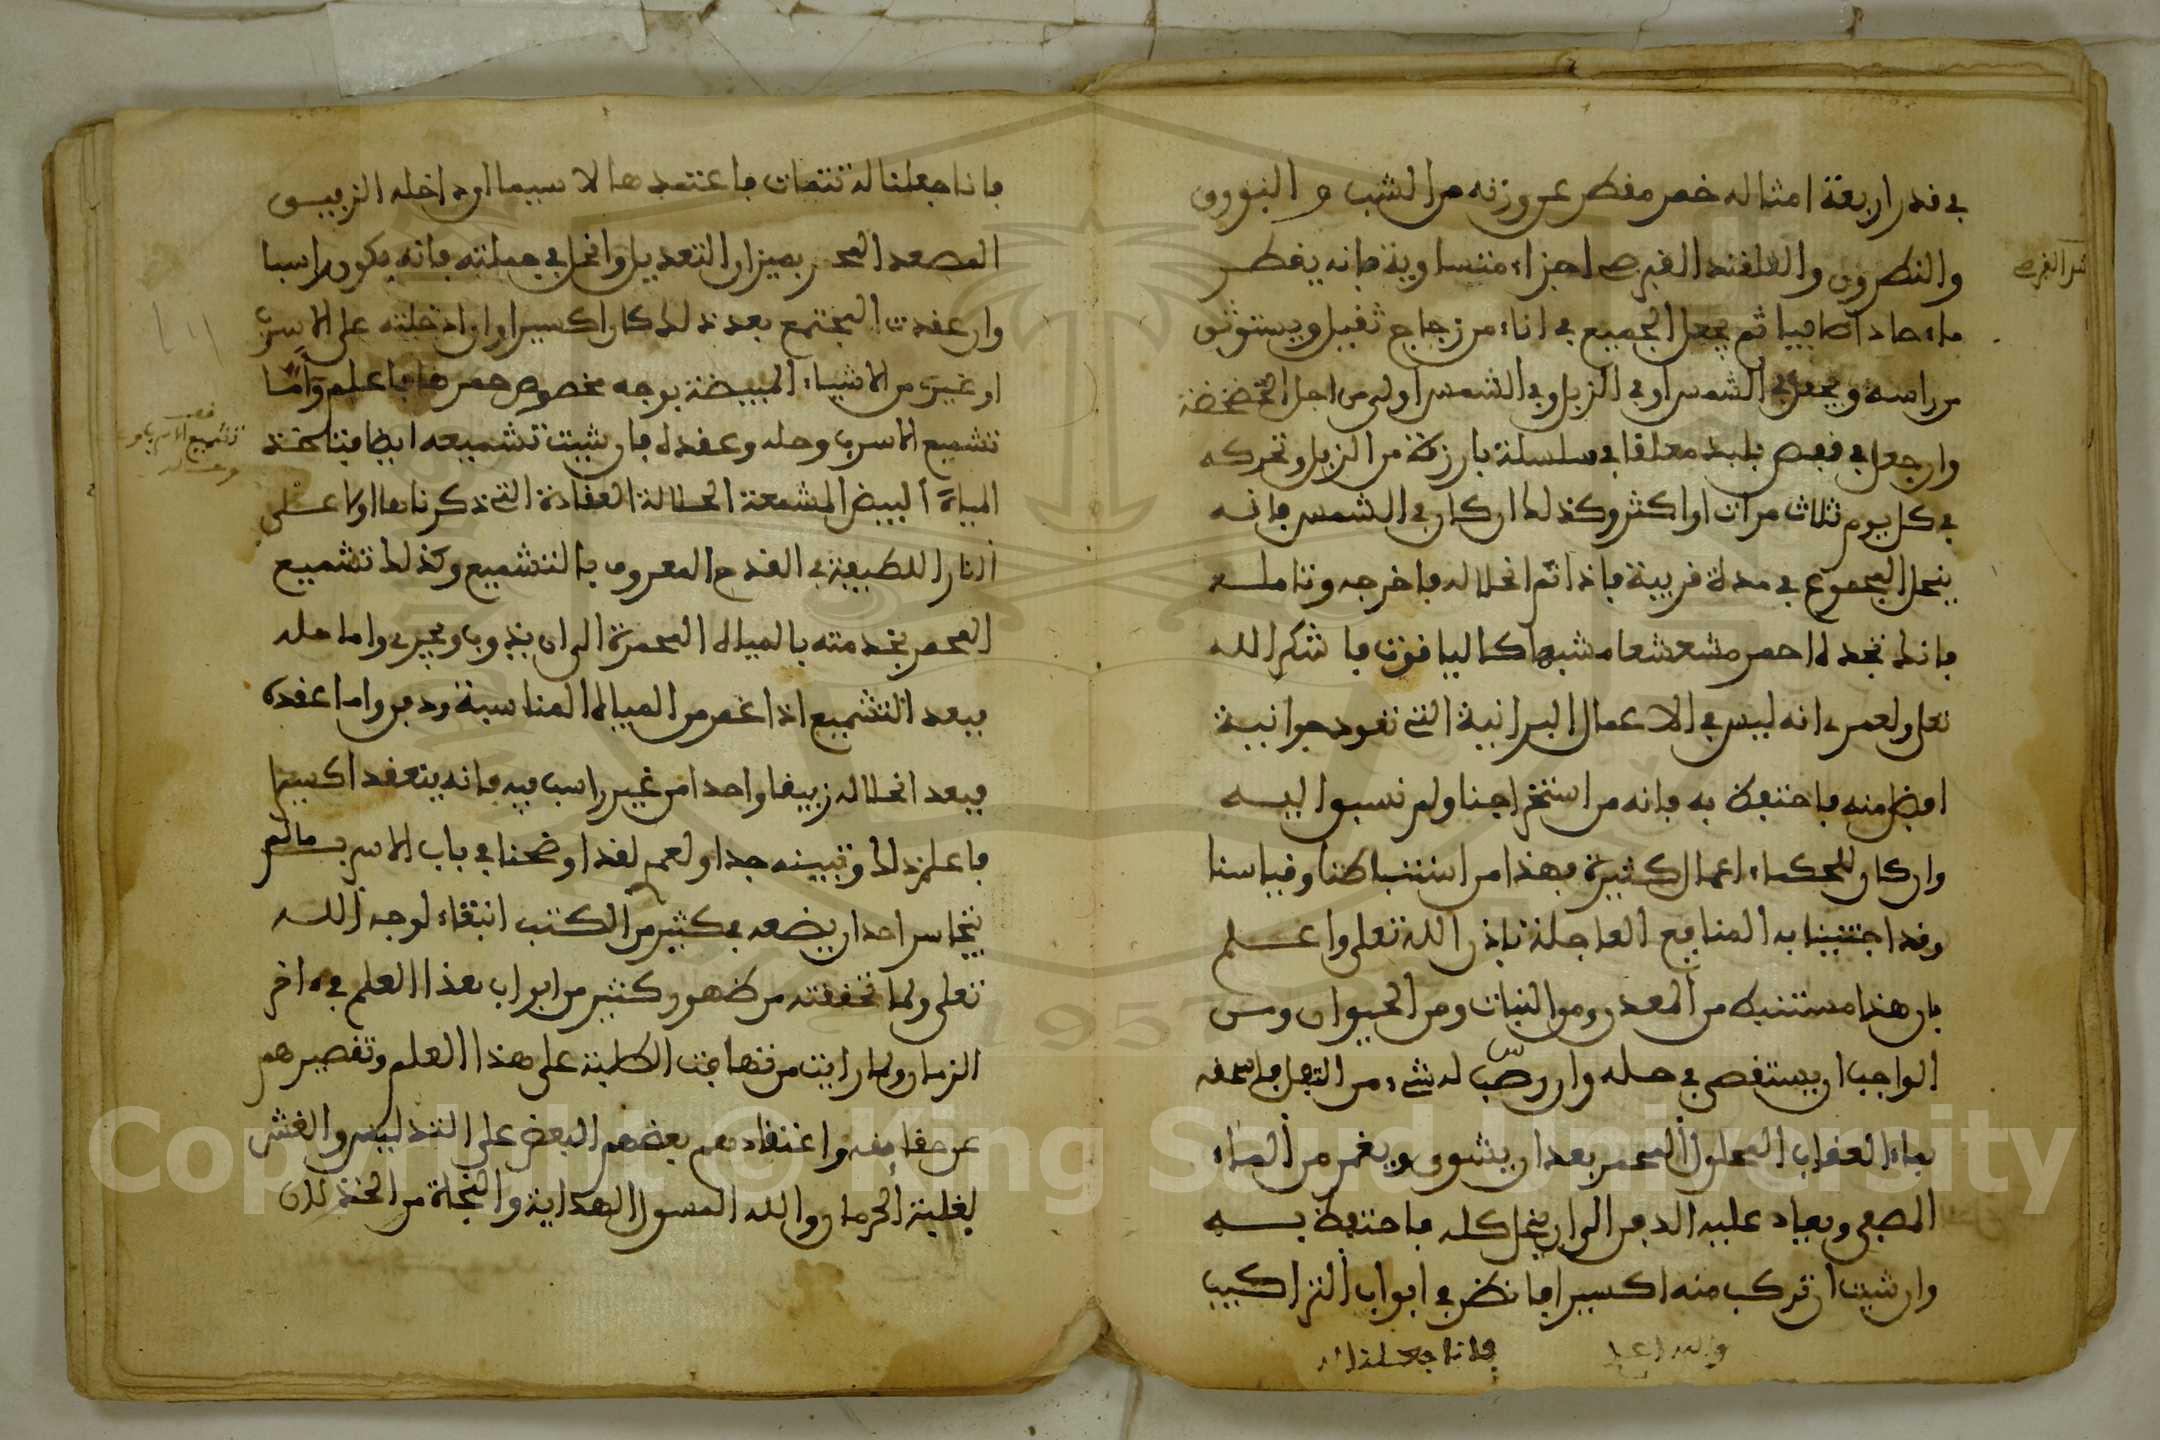 في قدر اربعة امثاله خمر مقطر عن وزنه من الشب و البورق
والنطرون والقلقند القبرصي اجزاء متساوية فانه يقطر
ماء حادا صابيا ثم يجعل الجميع في اناء من زجاج ثقيل ويستوثق
من راسه ويجعل في الشمس او في الزبل وفي الشمس اولى من اجل الخضخضة
وان جعل في قفص بلبد معلقا في سلسلة بارزة من الزبل وتحركه
في كل يوم ثلاث مرات او اكثر وكذلك ان كان في الشمس فانه
ينحل المجموع في مدة قريبة فاذا تم انحلاله فاخرجه وتامله
فانك تجده احمر مشعشعا مشبها كالياقوت فاشكر الله
تعلى ولعمرى انه ليس في الاعمال البرانية التي تعود جوانية
افضل منه فاحتفظ به فانه من استخراجنا ولم نسبوا اليه
وان كان للحكماء اعمال كثيرة فهذا من استنباطنا وقياسنا
وقد اجتنينا به المنافع العاجلة باذن الله تعلى واعلم
بان هذا مستنبط من المعدن ومن النبات ومن الحيوان ومن
الواجب ان يستقصى في حله وان رصب له شيء من الثفل فاسحقه
بماء العقاب المحلول المحمر بعد ان يشوى ويغمر من الماء
المصفى ويعاد عليه الدفن الى ان ينحل كله فاحتفظ به
وان شيت ان تركب منه اكسيرا فانظر في ابواب التراكيب
فانا جعلنا له
فانا جعلنا له تتمات فاعتمدها لا سيما ان داخله الزيبق
المصعد المحمر بميزان التعديل وانحل في جملته فانه يكون راسبا
وان عقدت المجتمع بعد ذلك كان اكسيرا وان ادخلته على الاسرب
او غيره من الاشياء المبيضة بوجه مخصوص حمرها فاعلم واما
تشميع الاسرب وحله وعقده فان شيت تشميعه ايضا فتاخذ
المياه البيض المشمعة الحلالة العقادة التي ذكرناها اولا على
النار اللطيفة في القدح المعروف بالتشميع وكذلك تشميع
المحمر بخدمته بالمياه المحمرة الى ان يذوب ويجرى واما حله
فبعد التشميع اذا غمر من المياه المناسبة ودفن واما عقده
فبعد انحلاله زيبقا واحدا من غير راسب فيه فانه ينعقد اكسيرا
فاعلم ذلك وتبينه جدا ولعمرى لقد اوضحنا في باب الاسرب ما لم
يتجاسر احد ان يضعه في كثير من الكتب ابتغاء لوجه الله
تعلى ولما تحققته من ظهور كثير من ابواب هذا العلم في اخر
الزمان ولما رايت من تهافت الطلبة على هذا العلم وتقصيرهم
عن حقايقه واعتقادهم بعضهم البعض على التدليس والغش
لغلبة الحرمان والله المسول الهداية والنجاة من الخذلان